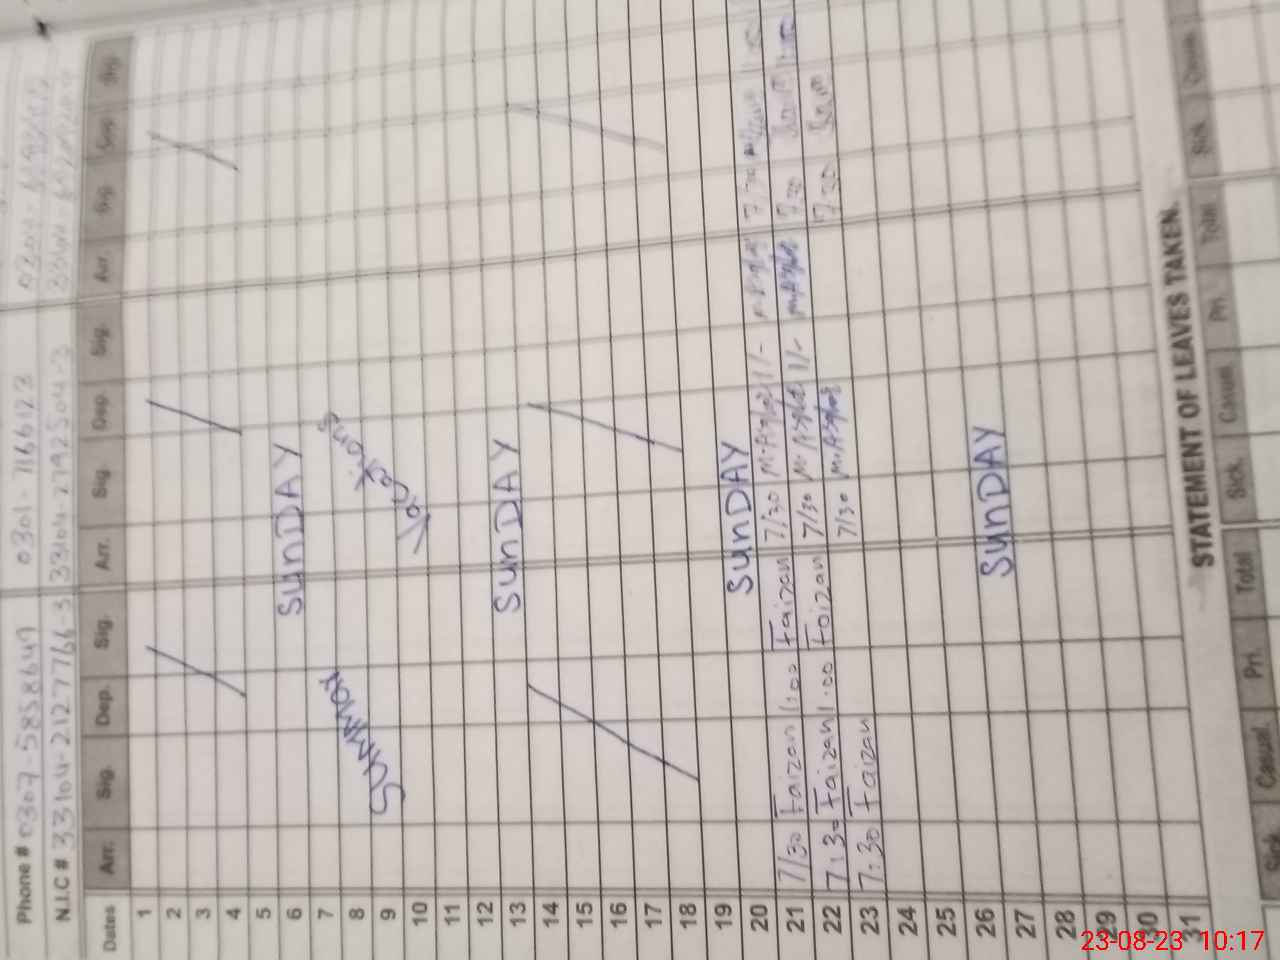 Phone # 0307-5858649 0301-7166123
N.I.C # 33104-2127766-3 33104-2192504-3
Dates Arr. Sig. Dep. Sig. Arr. Sig. Dep. Sig. Arr. Sig.
1
2
3
4
5
6 SunDAY
7
8
9
10
SUMMAR Vacations
11
12
13 SunDAY
14
15
16
17
18
19
20 SunDAY
21 7/30 Faizan 1:00 Faizan 7/30 M.Asghar 1/- M.Asghar 7/30
22 7:30 Faizan 1:00 Faizan 7/30 M.Asghar 1/- M.Asghar 7:30
23 7:30 Faizan 7/30 M.Asghar 7:30
24
25
26
27 SunDAY
28
29
30
31
STATEMENT OF LEAVES TAKEN.
Sick Casual. Pri. Total Sick. Casual Pri. Total Sick. Casua
23-08-23 10:17